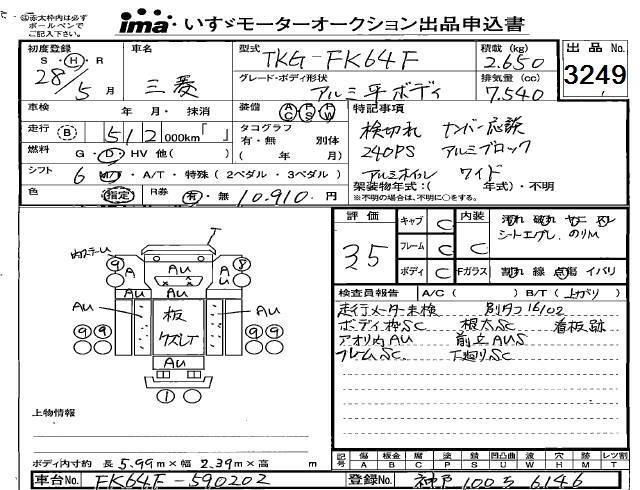 ◎赤太枠内は必ず
ボールペンで
ご記入下さい。
ima・いすゞモーターオークション出品申込書
初度登録
S・H・R
28/5月
車名
三菱
型式
TKG-FK64F
グレード・ボディ形状
アルミ平ボディ
積載(kg)
2.650
排気量(cc)
7.540
出品No.
3249
車検 年・月・抹消
装備 AC PS PW
特記事項
走行 B 512 000km「 」
タコグラフ
有・無 別体
( 年 月)
検切れ ナンバー応談
燃料 G・D・HV 他( )
240PS アルミブロック
シフト 6 M/T・A/T・特殊(2ペダル・3ペダル)
アルミホイル ワイド
色 指定
R券 有・無 10.910円
架装物年式:( 年式)・不明
※不明の場合は、不明に○をする。
評価
35
キャブ C
フレーム C
ボディ C
内装 C
Fガラス
シートエグレ. のりM
割れ 線 点傷 イバリ
検査員報告 A/C( ) B/T(上がり)
走行メーター未検
ボディ枠SC 根太SC 看板跡
アオリ内AU 前立AUS
フレームSC 下廻りSC
T
⑨ A Au A ⑧
Au Au
Au 板 Au
クズレT
⑨⑨ ⑨⑨
Au
①
上物情報
ボディ内寸約 長 5.99m×幅 2.39m×高 m
記号 傷A 板金B 腐C 塗P 錆S 凹凸曲U 波W 穴H 跡M レツ割T
車台No. FK64F-590202
登録No. 神戸 100 さ 6146